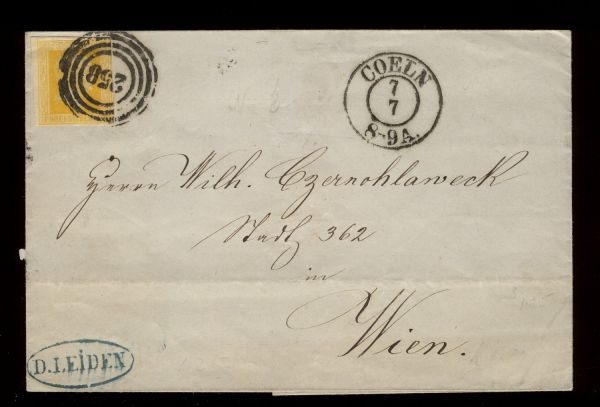 258
COELN
7
7
8-9A.
Herrn Wilh. Czernohlaweck
Stadt 362
in
Wien.
D. LEIDEN